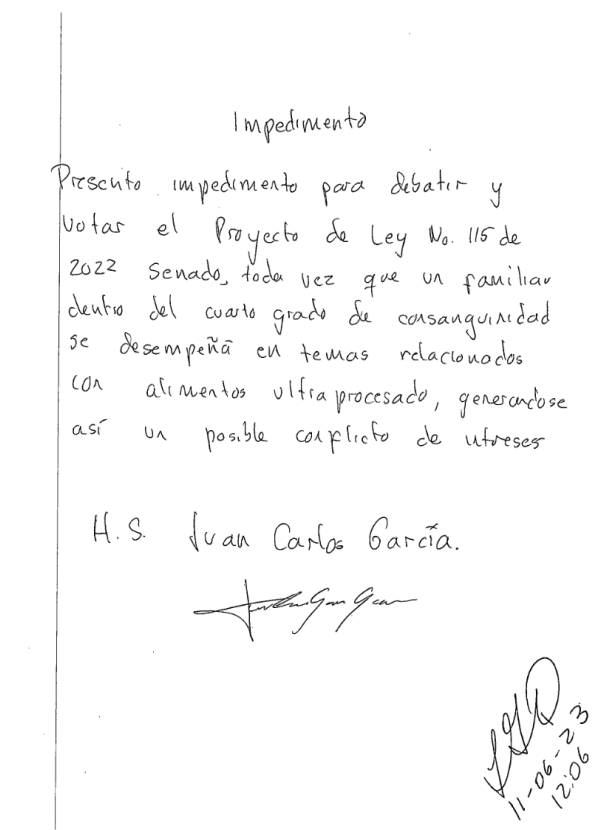 Impedimento
Presento impedimento para debatir y
votar el Proyecto de Ley No. 115 de
2022 Senado, toda vez que un familiar
dentro del cuarto grado de consanguinidad
se desempeña en temas relacionados
con alimentos ultraprocesado, generandose
así un posible conflicto de intereses
H.S. Juan Carlos García.
11-06-23
12:06